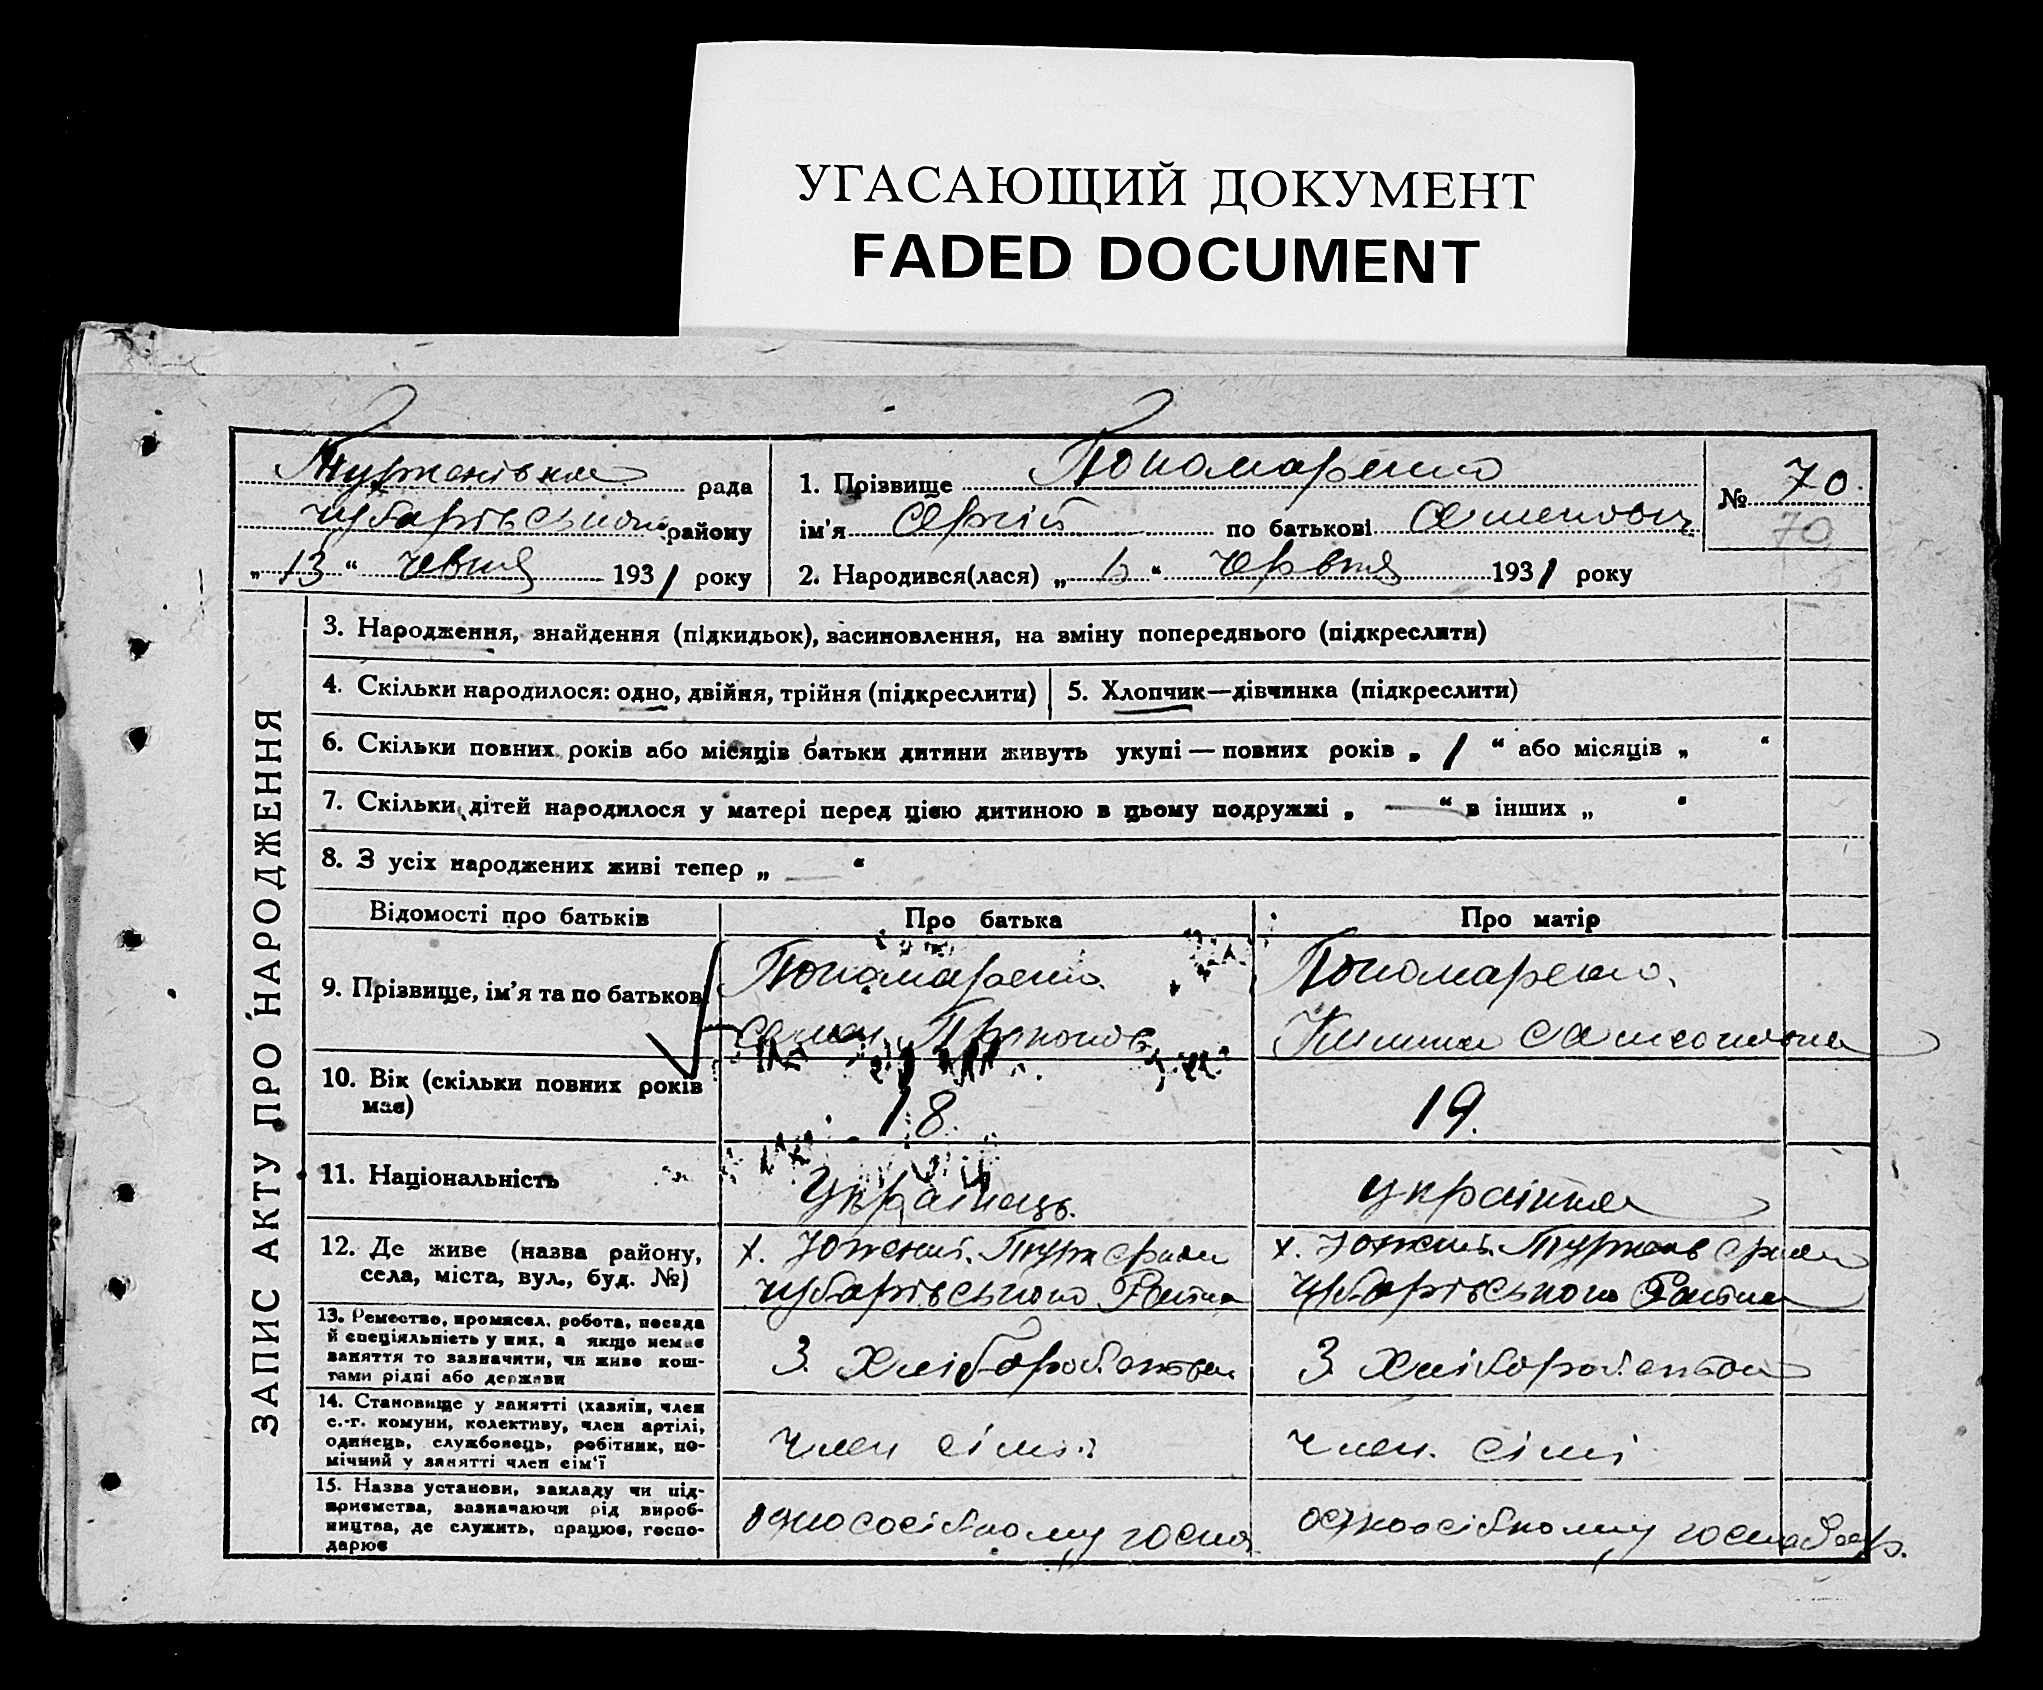 УГАСАЮЩИЙ ДОКУМЕНТ
FADED DOCUMENT
Турженівка рада
Чубарівського району
„ 13 “ Чевня 1931 року
1. Прізвище Пономаренко
ім'я Сергій по батькові Семенович
2. Народився(лася) „ “ Червня 1931 року
№ 70.
70
ЗАПИС АКТУ ПРО НАРОДЖЕННЯ
3. Народження, знайдення (підкидьок), васиновлення, на зміну попереднього (підкреслити)
4. Скільки народилося: одно, двійня, трійня (підкреслити)
5. Хлопчик—дівчинка (підкреслити)
6. Скільки повних років або місяців батьки дитини живуть укупі — повних років „ 1 “ або місяців „ “
7. Скільки дітей народилося у матері перед цією дитиною в цьому подружжі „ — “ в інших „ “
8. З усіх народжених живі тепер „ — “
Відомості про батьків Про батька Про матір
9. Прізвище, ім'я та по батькові
Пономаренко
Семен Прокопов
Пономаренко.
10. Вік (скільки повних років
має)
18.
19.
11. Національність
Українець.
українка
12. Де живе (назва району,
села, міста, вул., буд. №)
х. Турж сради
Чубарівського Району
х. Туржен сради
Чубарівського Району
13. Ремество, промисел, робота, посада
й спеціяльність у них, а якщо немає
заняття то зазначити, чи живе кош-
тами рідні або держави
З. Хліборобства
З Хліборобства
14. Становище у занятті (хазяїн, член
с.-г. комуни, колективу, член артілі,
одинець, службовець, робітник, по-
мічний у занятті член сім'ї
член сімї
член. сімї
15. Назва установи, закладу чи під-
приємства, зазначаючи рід вироб-
ництва, де служить, працює, госпо-
дарює
однососібному госпо
одноосібному господар.